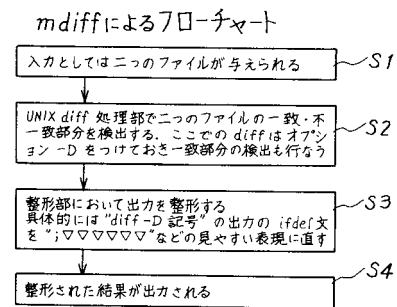 mdiffによるフローチャート
入力としては二つのファイルが与えられる
S1
UNIX diff 処理部で二つのファイルの一致・不
一致部分を検出する．ここでの diffはオプシ
ョン -D をつけておき一致部分の検出も行なう
S2
整形部において出力を整形する
具体的には"diff -D 記号"の出力の ifdef文
を";▽▽▽▽▽▽"などの見やすい表現に直す
S3
整形された結果が出力される
S4